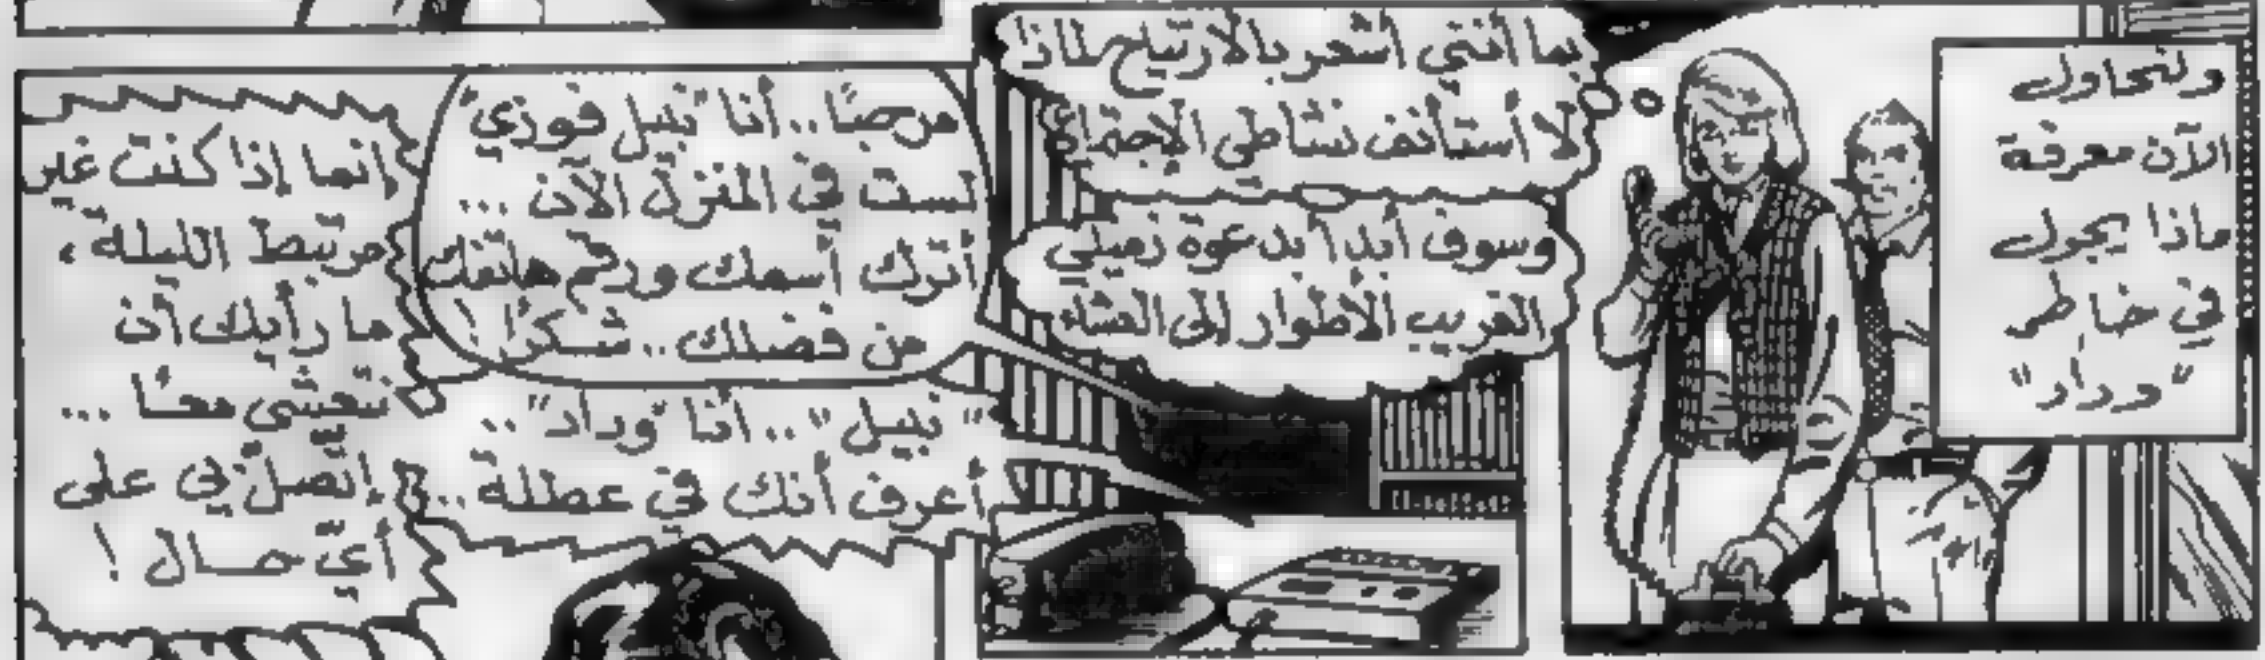 ولنحاول
الآن معرفة
ماذا يجول
في خاطر
"وداد"
بما أنني أشعر بالارتياح لماذا
لا أستأنف نشاطي الإجتماعي
وسوف أبدأ بدعوة زميلي
الغريب الأطوار إلى العشاء
مرحبًا.. أنا "نبيل فوزي"
لست في المنزل الآن ...
أترك أسمك ورقم هاتفك
من فضلك.. شكرًا!
"نبيل".. أنا "وداد"..
أعرف أنك في عطلة..
إنما إذا كنت غير
مرتبط الليلة،
ما رأيك أن
نتعشى معًا ...
إتّصل بي على
أيّ حال!